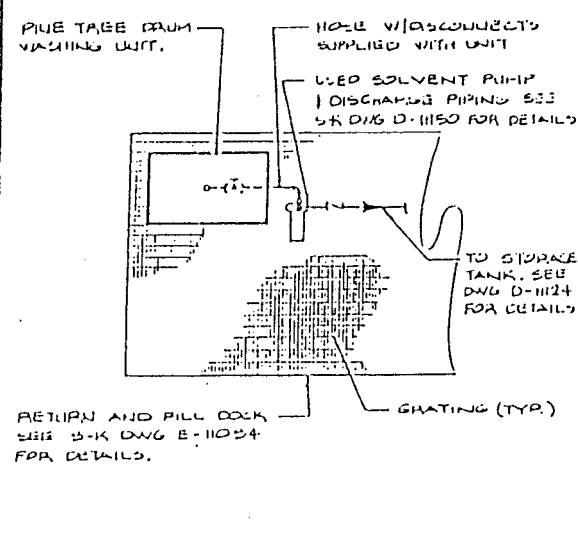 PINE TREE DRUM
WASHING UNIT.
HOSE W/DISCONNECTS
SUPPLIED WITH UNIT
USED SOLVENT PUMP
DISCHARGE PIPING SEE
S-K DWG D-11150 FOR DETAILS
TO STORAGE
TANK. SEE
DWG D-11124
FOR DETAILS
GRATING (TYP.)
RETURN AND FILL DOCK
SEE S-K DWG E-11054
FOR DETAILS.